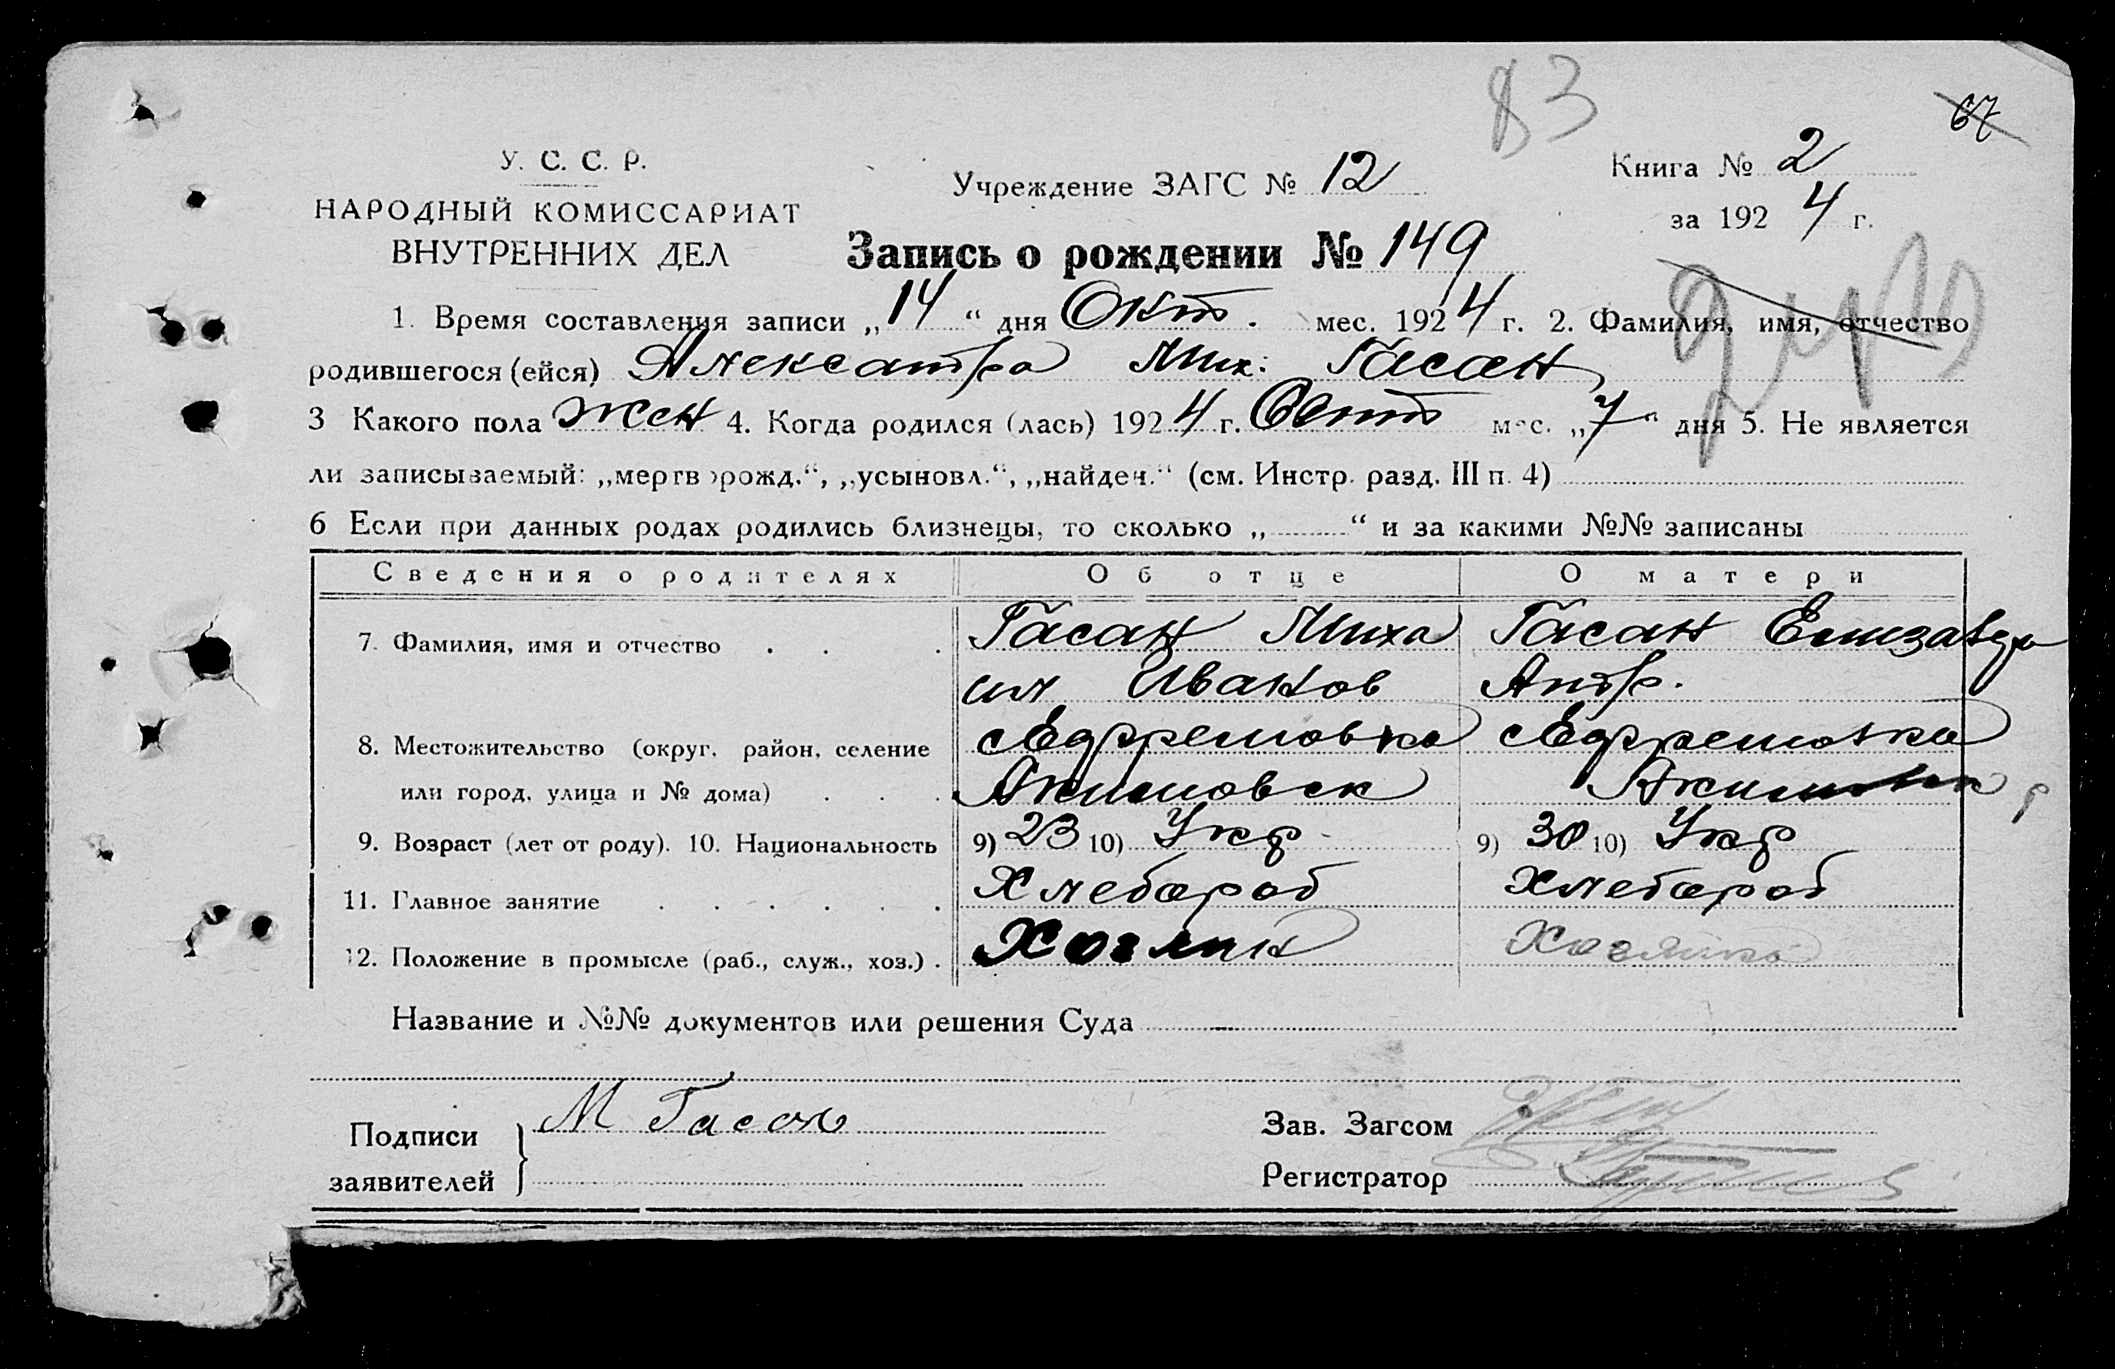 83
67
У. С. С. Р.
НАРОДНЫЙ КОМИССАРИАТ
ВНУТРЕННИХ ДЕЛ
Учреждение ЗАГС № 12
Книга № 2
за 1924 г.
Запись о рождении № 149
1. Время составления записи „14“ дня Окт. мес. 1924 г. 2. Фамилия, имя, отчество
родившегося (ейся) Александра Мих: Гасан
3 Какого пола жен 4. Когда родился (лась) 1924 г. Сент мес. „7“ дня 5. Не является
ли записываемый: „мертворожд.“, „усыновл.“, „найден.“ (см. Инстр. разд. III п. 4)
6 Если при данных родах родились близнецы, то сколько „ “ и за какими №№ записаны
Сведения о родителях Об отце О матери
7. Фамилия, имя и отчество Гасан Миха Гасан Елизавета
ил Иванов Андр.
8. Местожительство (округ, район, селение с Ефремовка с Ефремовка
или город, улица и № дома) Акимовск Акимовск р
9. Возраст (лет от роду). 10. Национальность 9) 23 10) Укр 9) 30 10) Укр
11. Главное занятие Хлебороб Хлебороб
12. Положение в промысле (раб., служ., хоз.) Хозяин Хозяйка
Название и №№ документов или решения Суда
Подписи
заявителей
М Гасан
Зав. Загсом
Регистратор